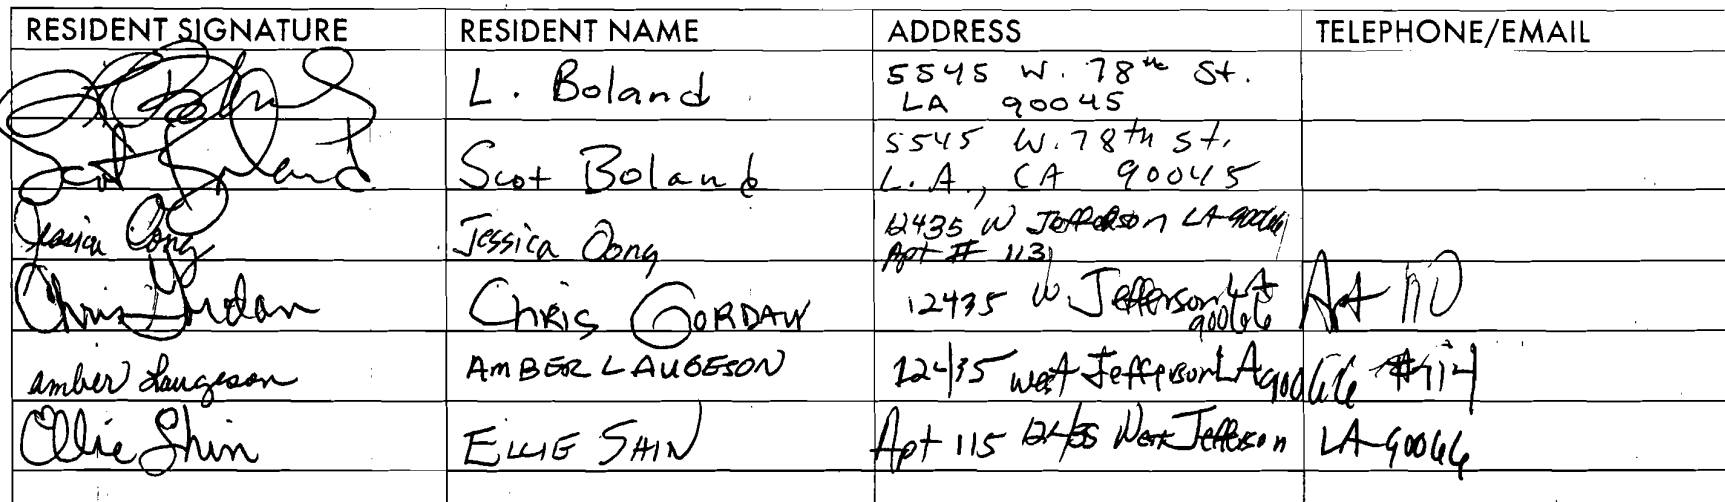 RESIDENT SIGNATURE RESIDENT NAME ADDRESS TELEPHONE/EMAIL
L. Boland 5545 W. 78th St.
LA 90045
Scot Boland Scot Boland 5545 W. 78th St.
L.A., CA 90045
Jessica Oong 12435 W Jefferson LA 90066
Apt # 113
Chris Gordan Chris GORDAN 12435 W. Jefferson LA Apt 110
90066
amber Laugeson AMBER LAUGESON 12435 west Jefferson LA 90066 #114
Ellie Shin ELLIE SHIN Apt 115 12435 West Jefferson LA 90066